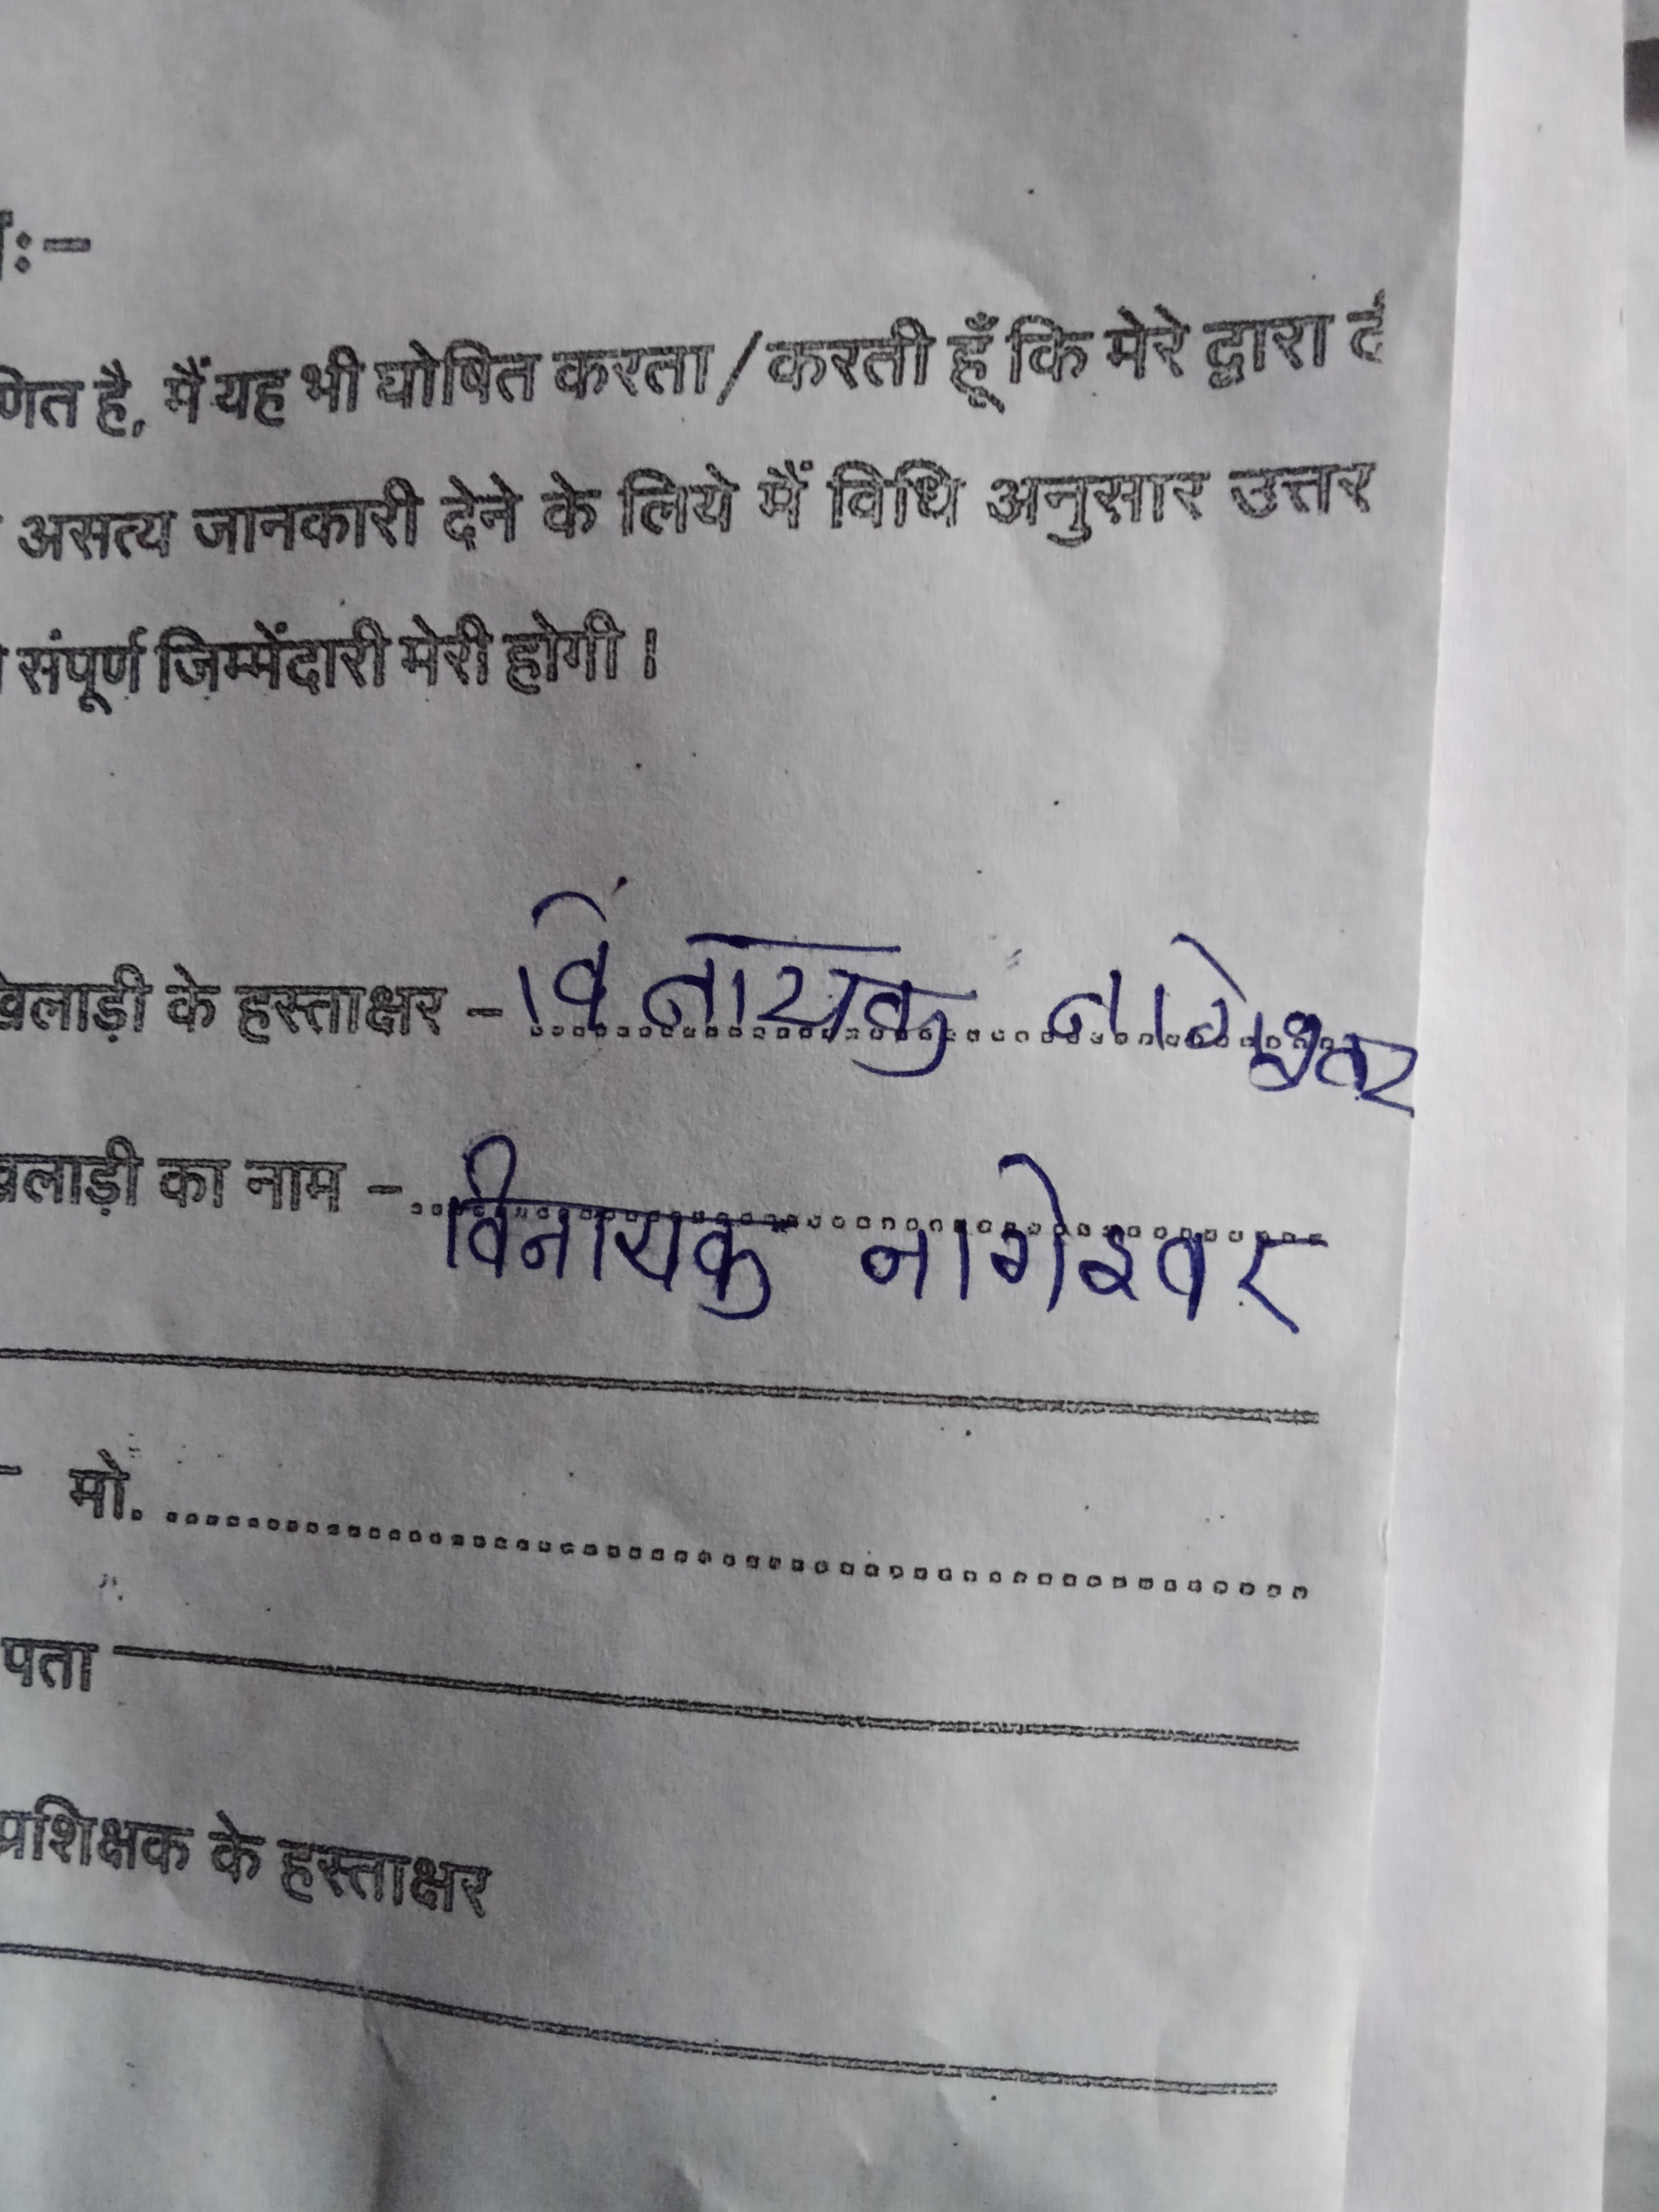 :-
णित है, मैं यह भी घोषित करता/करती हूँ कि मेरे द्वारा
असत्य जानकारी देने के लिये मैं विधि अनुसार उत्तर
संपूर्ण जिम्मेंदारी मेरी होगी।
खिलाड़ी के हस्ताक्षर - विनायक नागेश्वर
खलाड़ी का नाम - विनायक नागेश्वर
मो.
पता
प्रशिक्षक के हस्ताक्षर